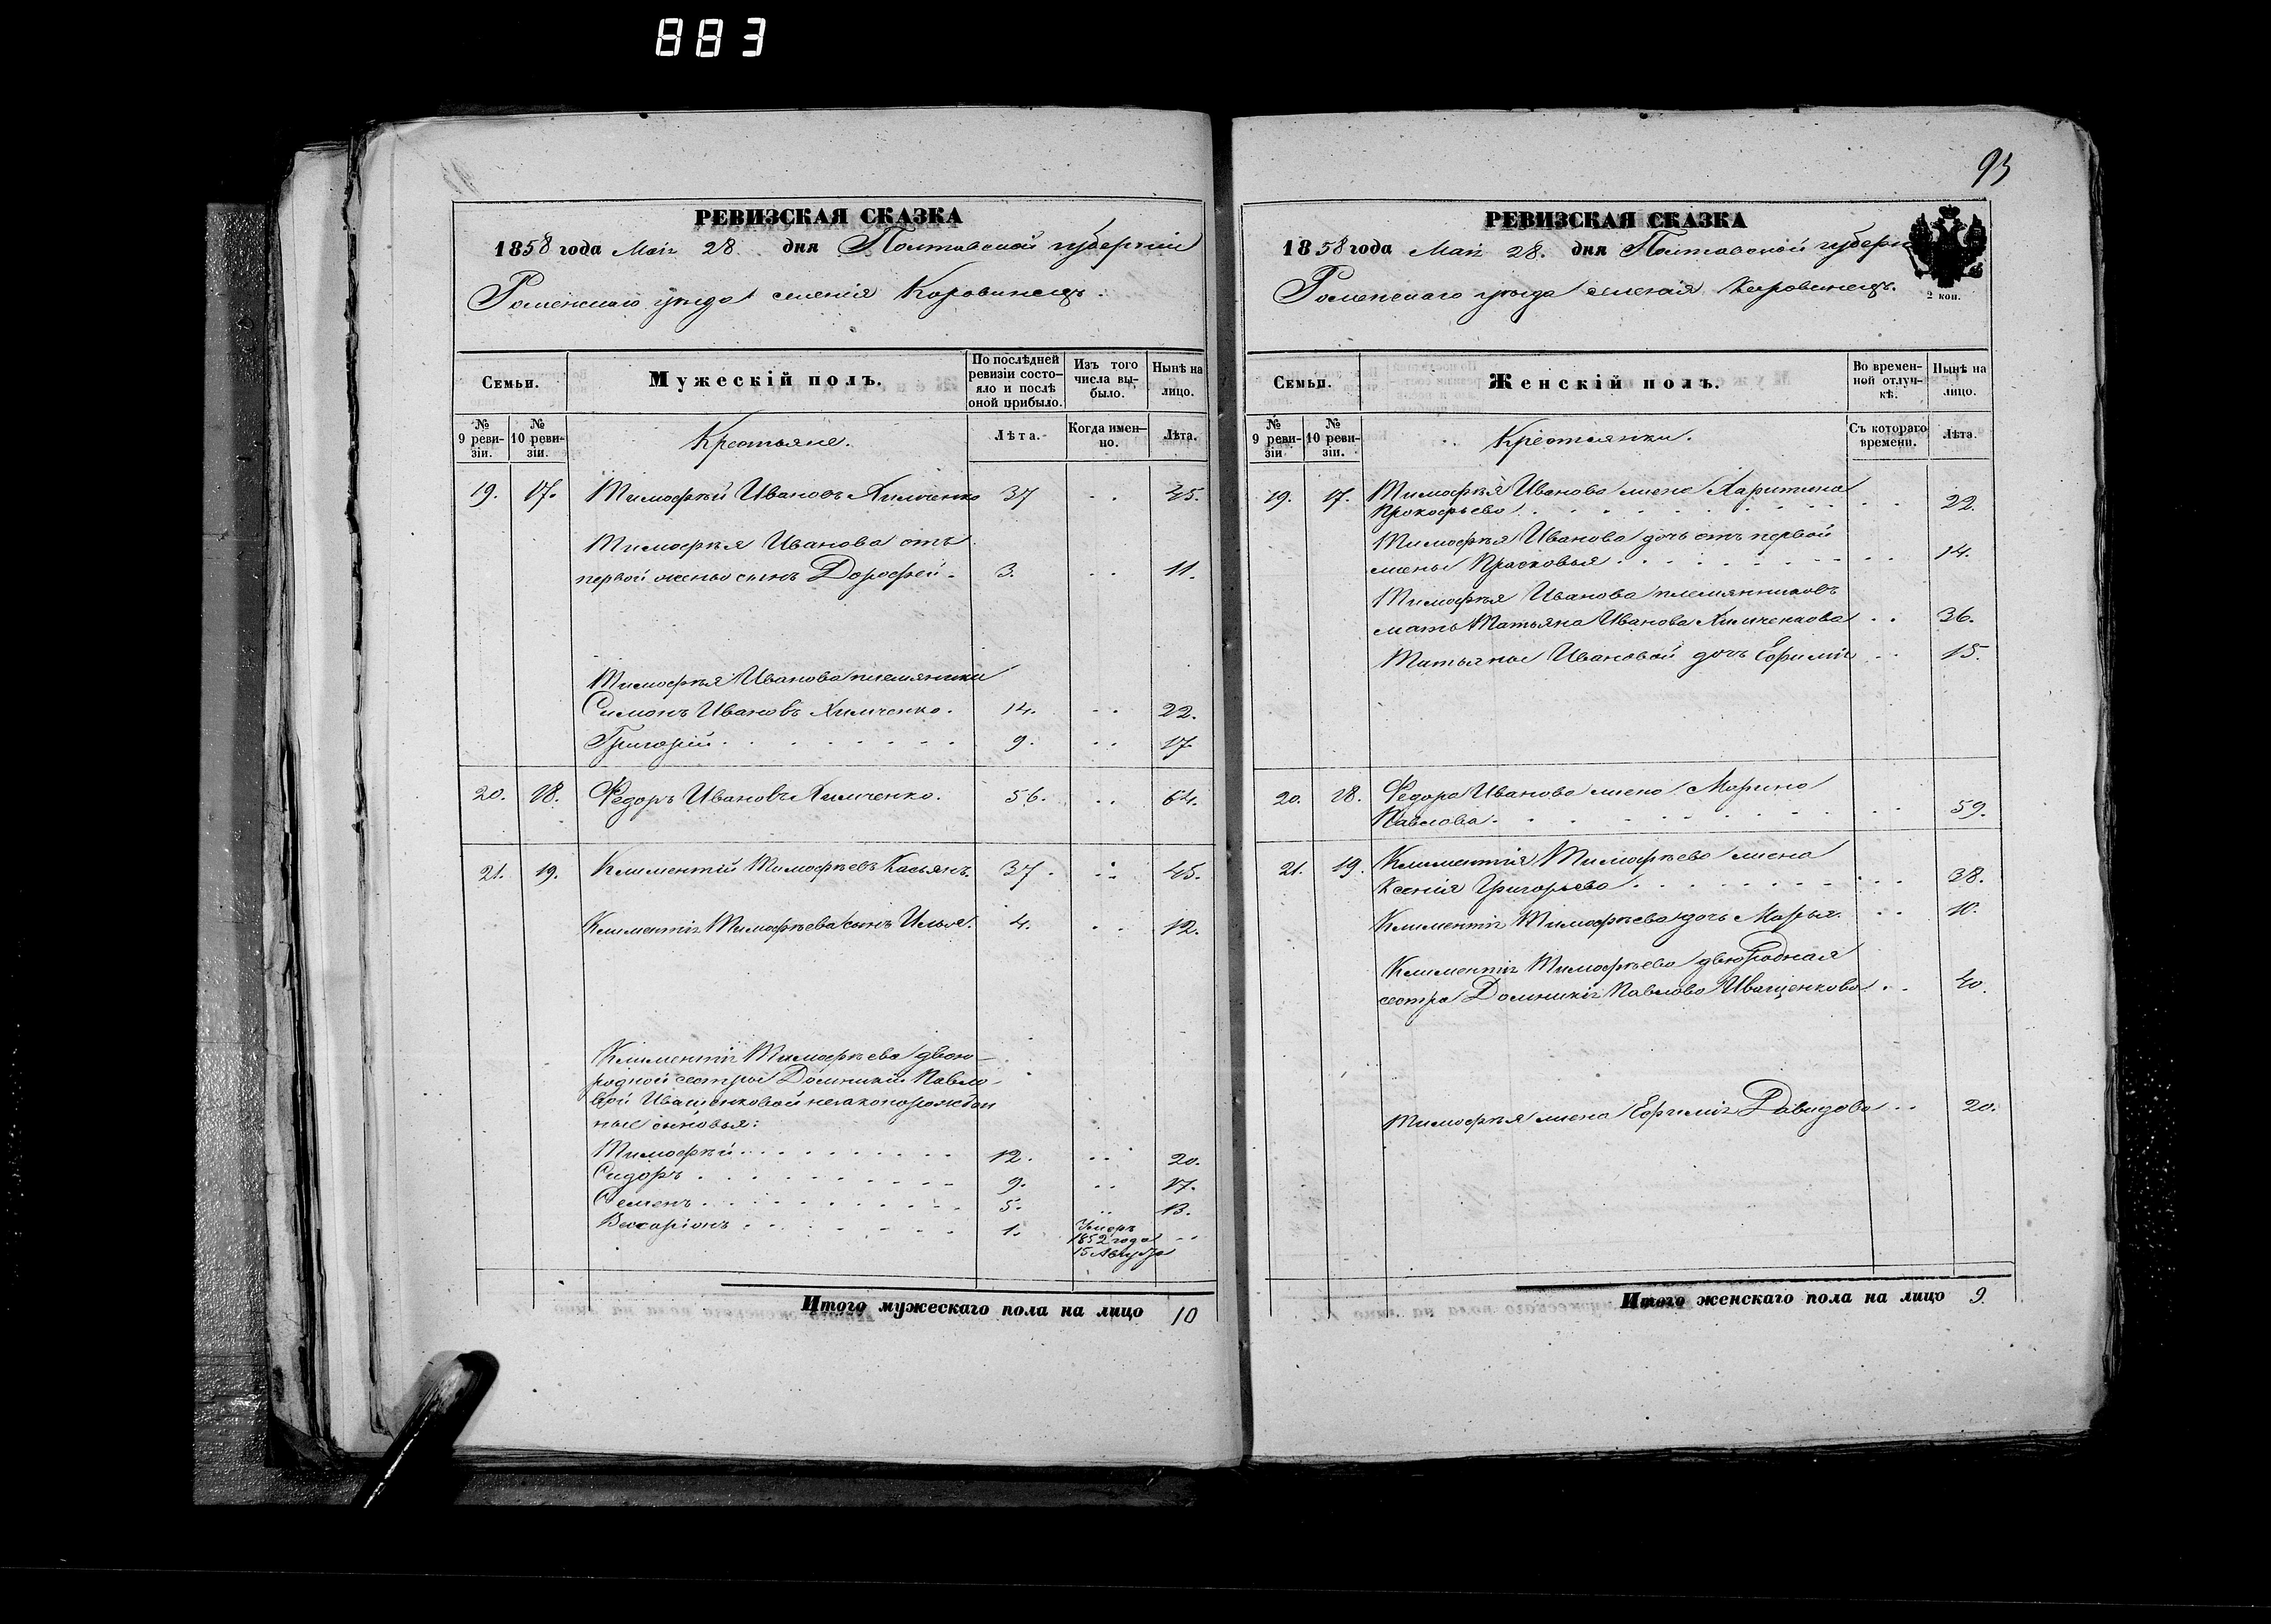 883
РЕВИЗСКАЯ СКАЗКА
1858 года Мая 28 дня Полтавской губерніи
Роменскаго уѣзда селенія Коровинецъ.
Семьи.
Мужескій полъ.
По послѣдней ревизіи состояло и послѣ оной прибыло.
Изъ того числа выбыло.
Нынѣ на лицо.
№ 9 ревизіи.
№ 10 ревизіи.
Крестьяне.
Лѣта.
Когда именно.
Лѣта.
19. 17. Тимофѣй Ивановъ Химченко 37 . . 45.
Тимофѣя Иванова отъ
первой жены сынъ Дорофей. 3. . . 11.
Тимофѣя Иванова племяники
Симонъ Ивановъ Химченко. 14. . . 22.
Григорій 9. . . 17
20. 18. Федоръ Ивановъ Химченко. 56. . . 64.
21. 19. Климентій Тимофѣевъ Касьянъ. 37. . . 45.
Климентія Тимофѣева сынъ Илья. 4. . . 12.
Климентія Тимофѣева двою-
родной сестры Домникіи Павло-
вой Иващенковой незаконорожден
ные сыновья:
Тимофѣй 12. . . 20.
Сидоръ 9. . . 17.
Семенъ 5. . . 13.
Виссаріонъ 1. Умеръ 1852 года 15 Августа . .
Итого мужескаго пола на лицо 10
93
РЕВИЗСКАЯ СКАЗКА
1858 года Мая 28. дня Полтавской губерн
Роменскаго уѣзда селенія Коровинецъ.
2 коп.
Семьи.
Женскій полъ.
Во временной отлучкѣ.
Нынѣ на лицо.
№ 9 ревизіи
№ 10 ревизіи.
Крестьянки.
Съ котораго времени.
Лѣта.
19. 17. Тимофѣя Иванова жена Харитина
Прокофьева . . 22.
Тимофѣя Иванова дочь отъ первой
жены Прасковья . . 14.
Тимофѣя Иванова племянниковъ
мать Татьяна Иванова Химченкова . . 36.
Татьяны Ивановой дочь Ефимія . . 15.
20. 18. Федора Иванова жена Марина
Павлова . . 59.
21. 19. Климентія Тимофѣева жена
Ксенія Григорьева . . 38.
Климентія Тимофѣева дочь Марья. . . 10.
Климентія Тимофѣева двоюродная
сестра Домникія Павлова Иващенкова . . 40.
Тимофѣя жена Ефимія Давидова . . 20.
Итого женскаго пола на лицо 9.